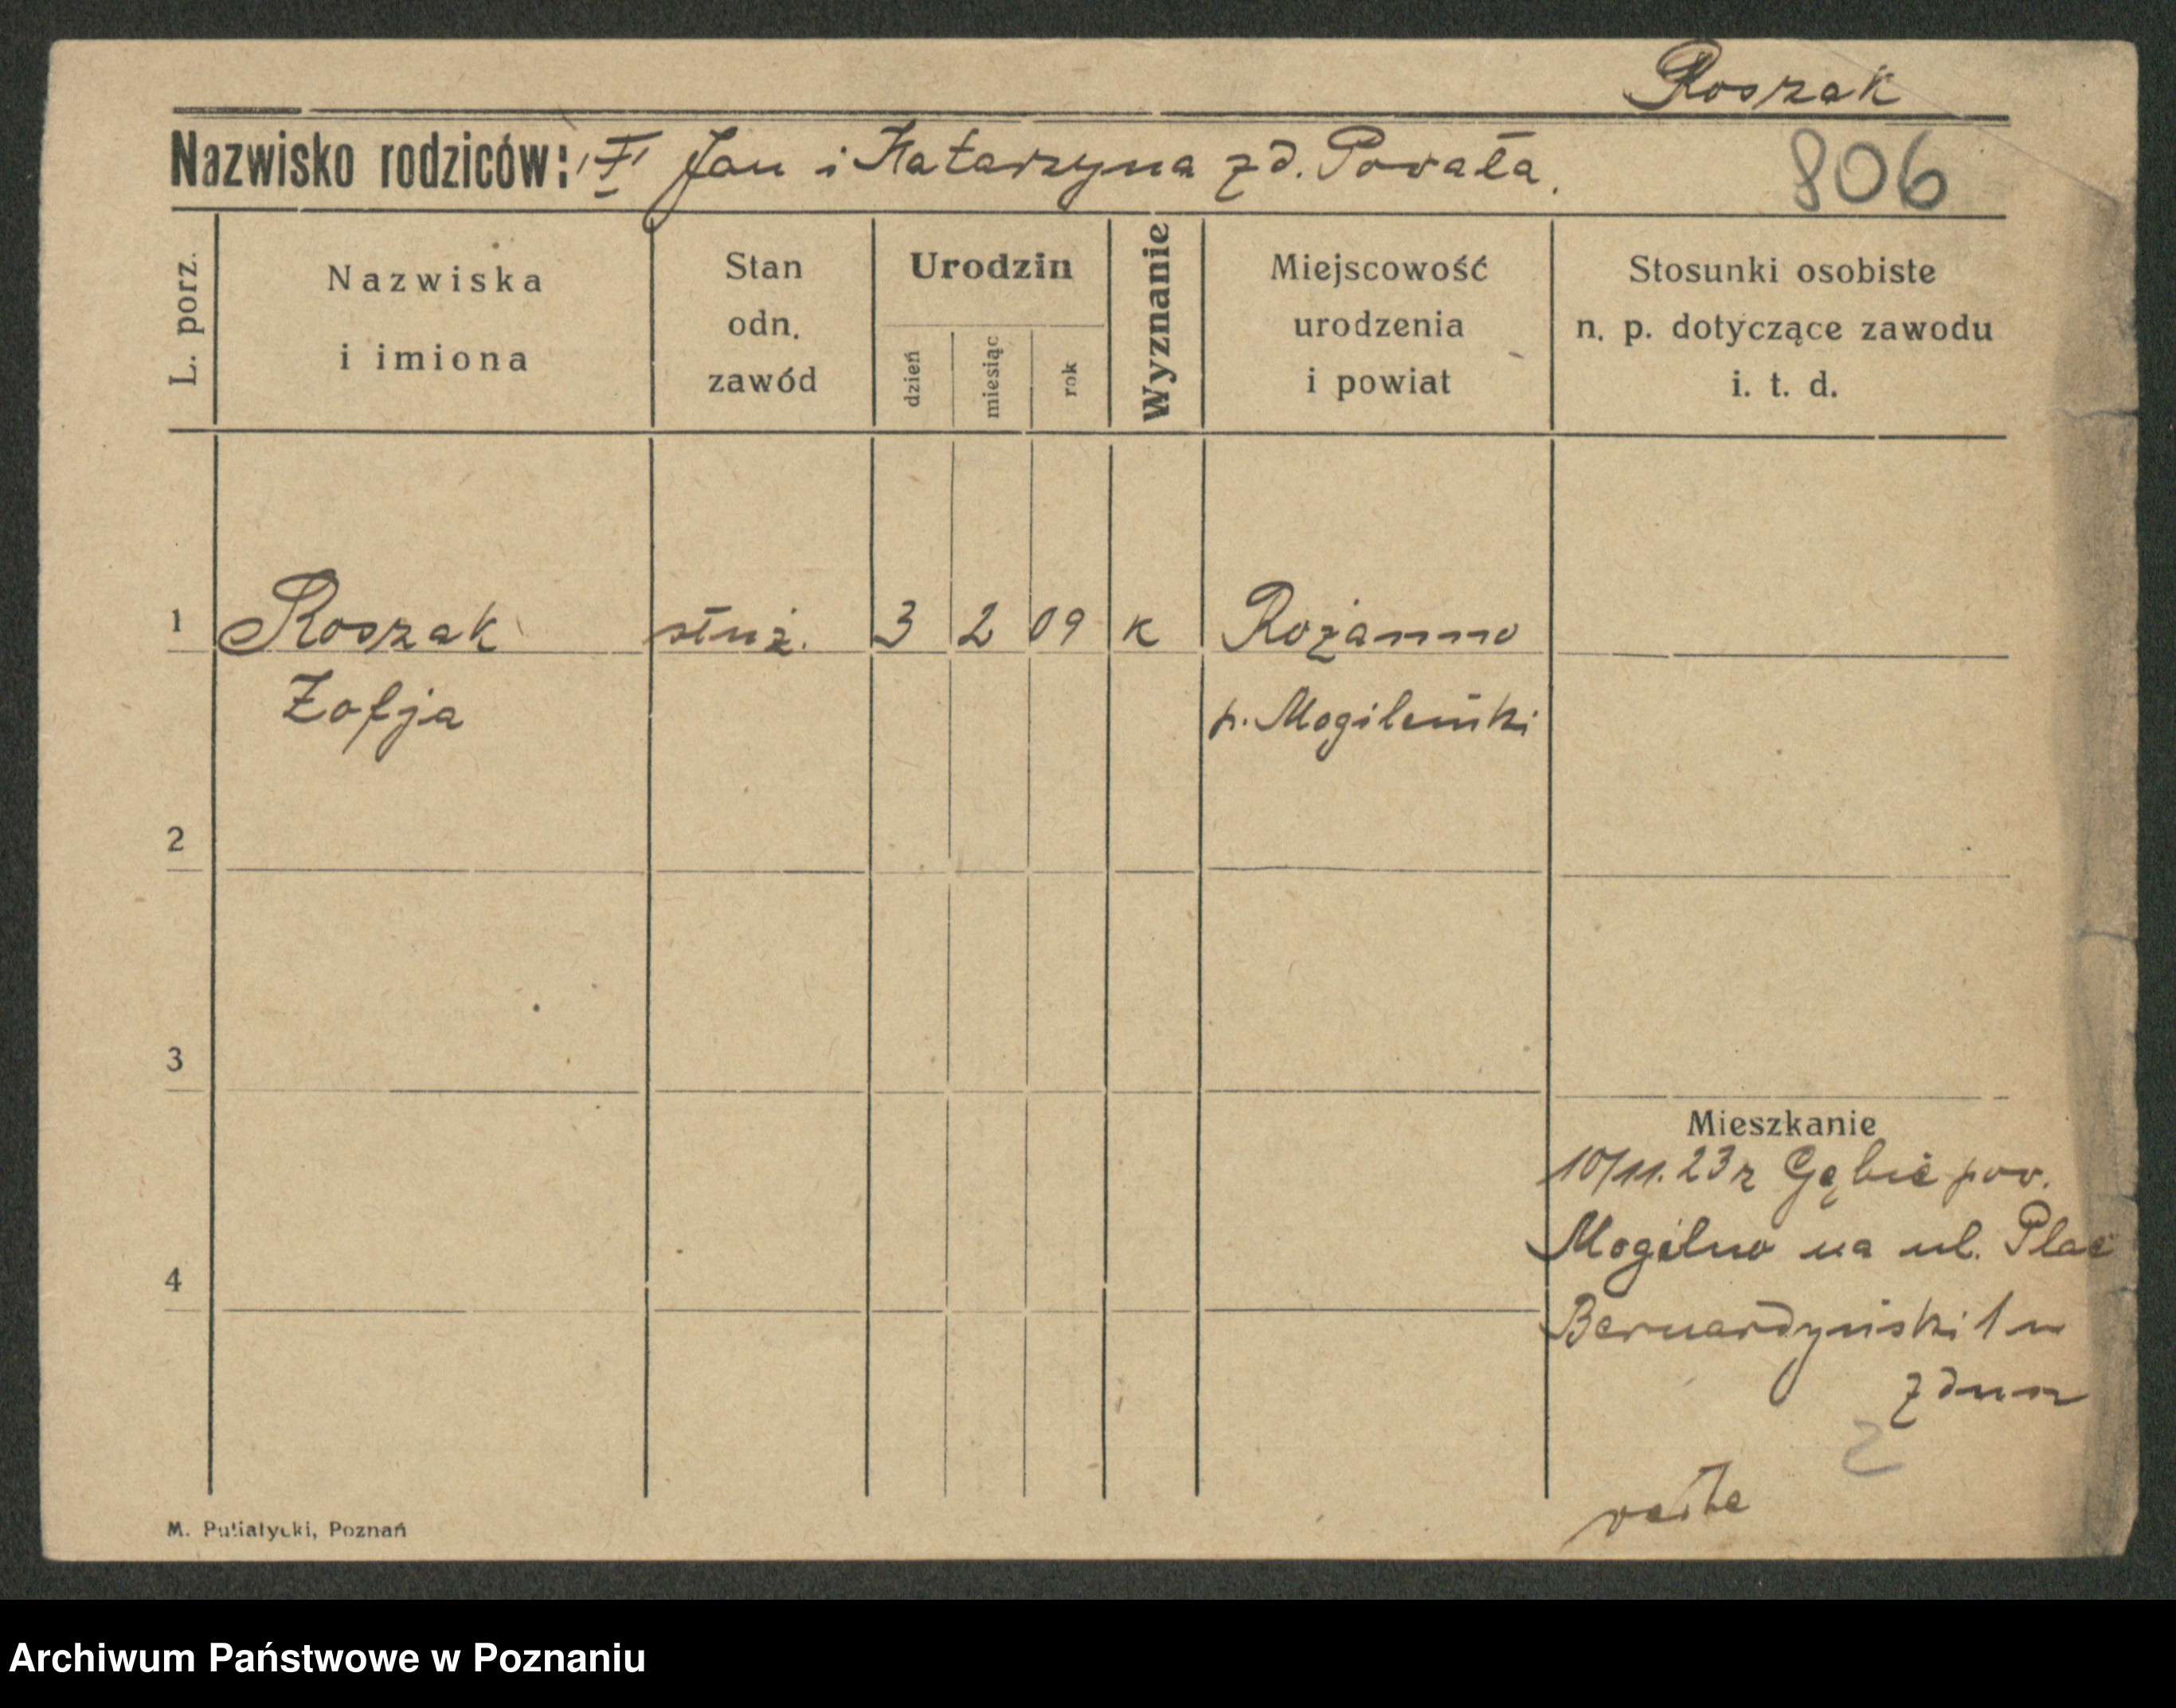 Roszak
Nazwisko rodziców: Jan i Katarzyna zd. Powała.
806
L. porz.
Nazwiska
i imiona
Stan
odn.
zawód
Urodzin
dzień
miesiąc
rok
Wyznanie
Miejscowość
urodzenia
i powiat
Stosunki osobiste
n. p. dotyczące zawodu
i. t. d.
1 Roszak służ. 3 2 09 K Rożanno
Zofja p. Mogileński
2
3
Mieszkanie
10/11.23 r Gębic pow.
Mogilno na ul. Plac
4
Bernardyński 1 u
2
M. Putiatycki, Poznań
Archiwum Państwowe w Poznaniu